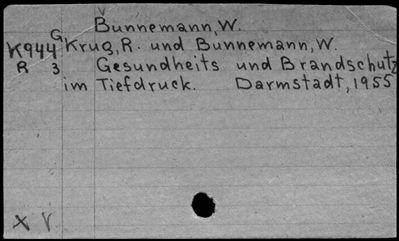 Bunnemann, W.
G
K944 Krug, R. und Bunnemann, W.
R 3 Gesundheits und Brandschutz
im Tiefdruck. Darmstadt, 1955
X V